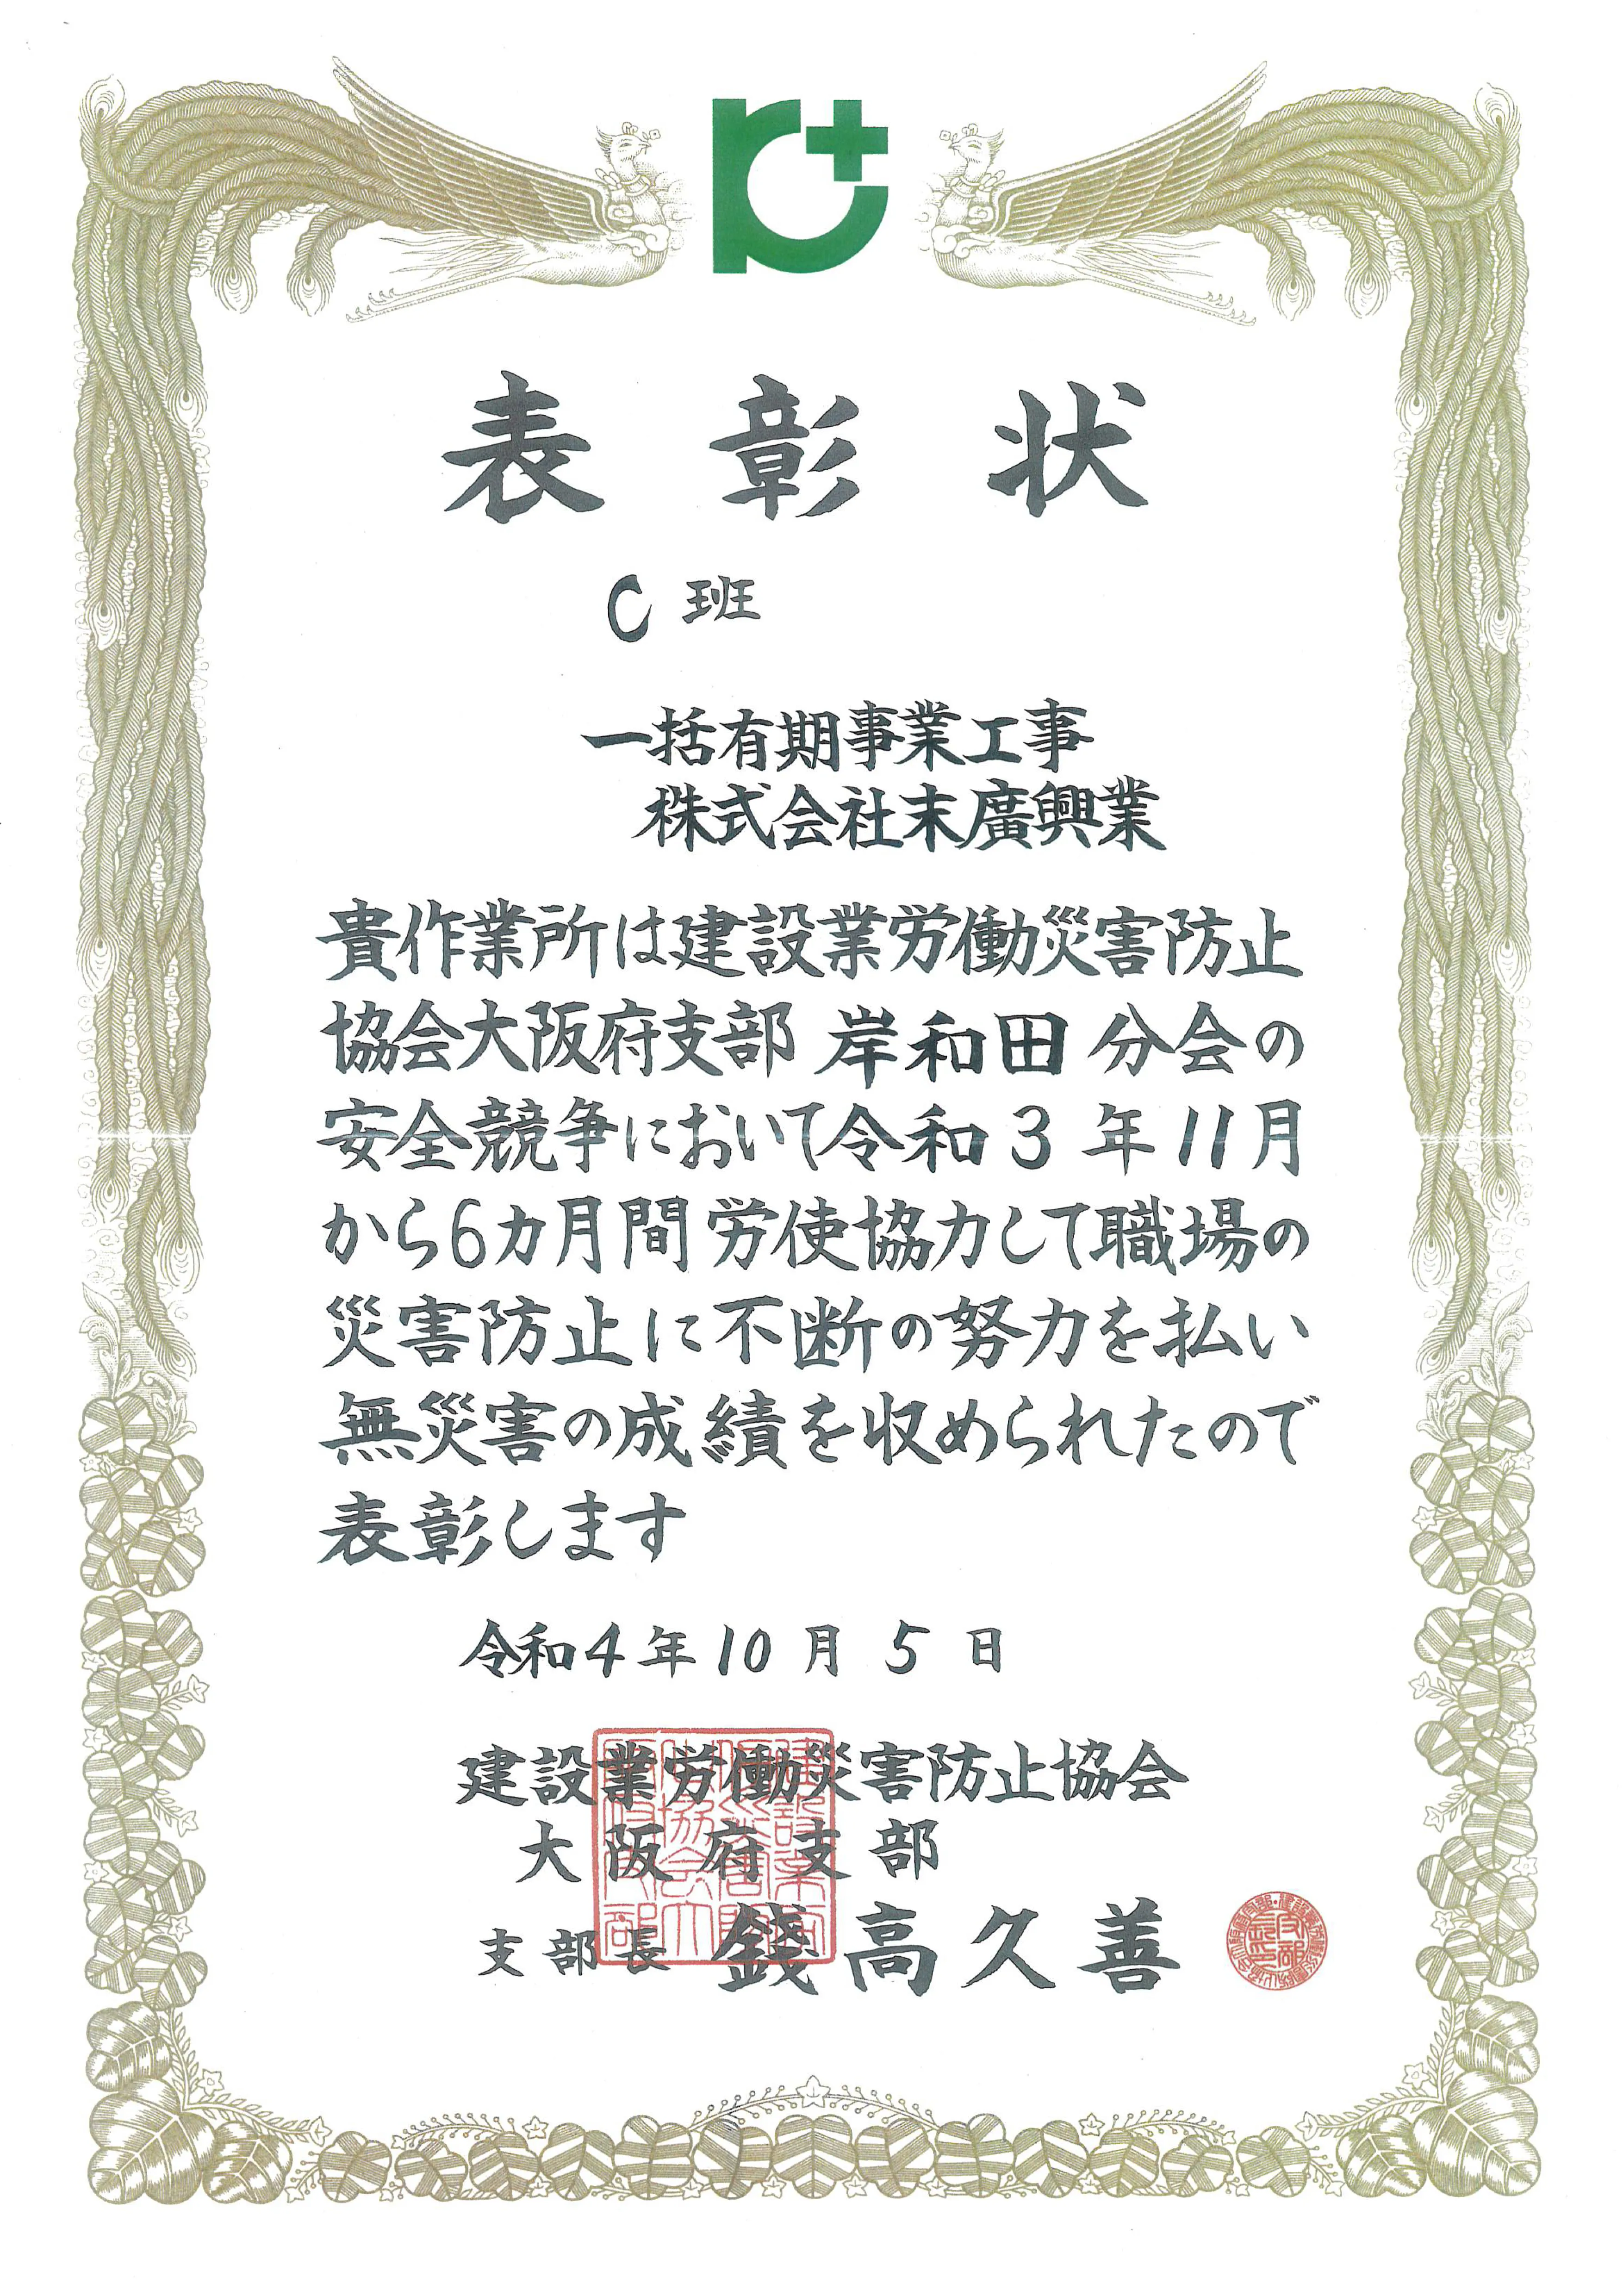 表彰状
C班
一括有期事業工事
株式会社末廣興業
貴作業所は建設業労働災害防止
協会大阪府支部 岸和田 分会の
安全競争において令和3年11月
から6カ月間労使協力して職場の
災害防止に不断の努力を払い
無災害の成績を収められたので
表彰します
令和4年10月5日
建設業労働災害防止協会
大阪府支部
支部長 錢高久善